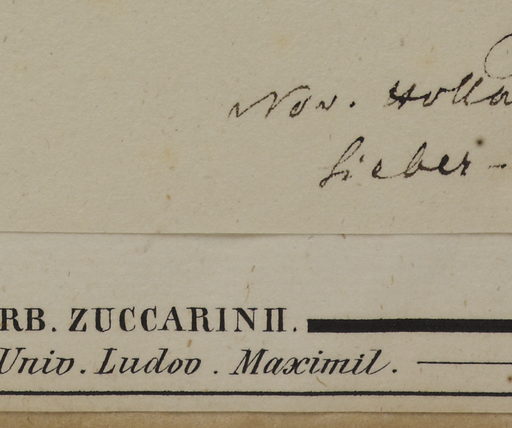 Nov. Holla
Sieber-
RB. ZUCCARINII.
Univ. Ludov. Maximil.